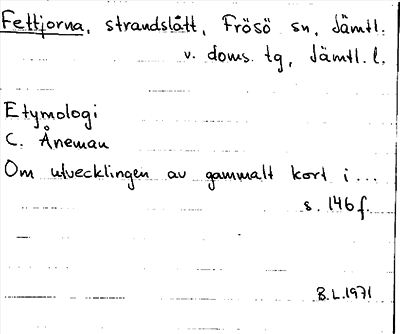 Fettjorna, strandslått, Frösö sn, Jämtl.
v. doms. tg, Jämtl. l.
Etymologi
C. Åneman
Om utvecklingen av gammalt kort i ...
s. 146 f.
B.L. 1971